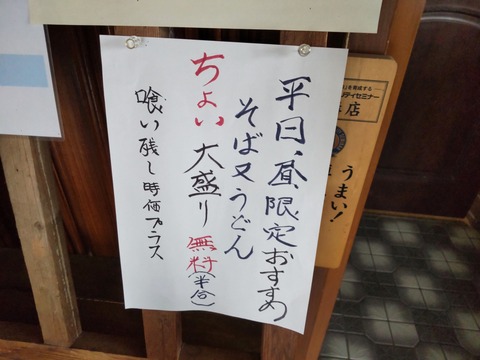 平日、昼、限定おすすめ
そば又うどん
ちょい大盛り無料(半合)
喰い残し時価プラス
うまい!